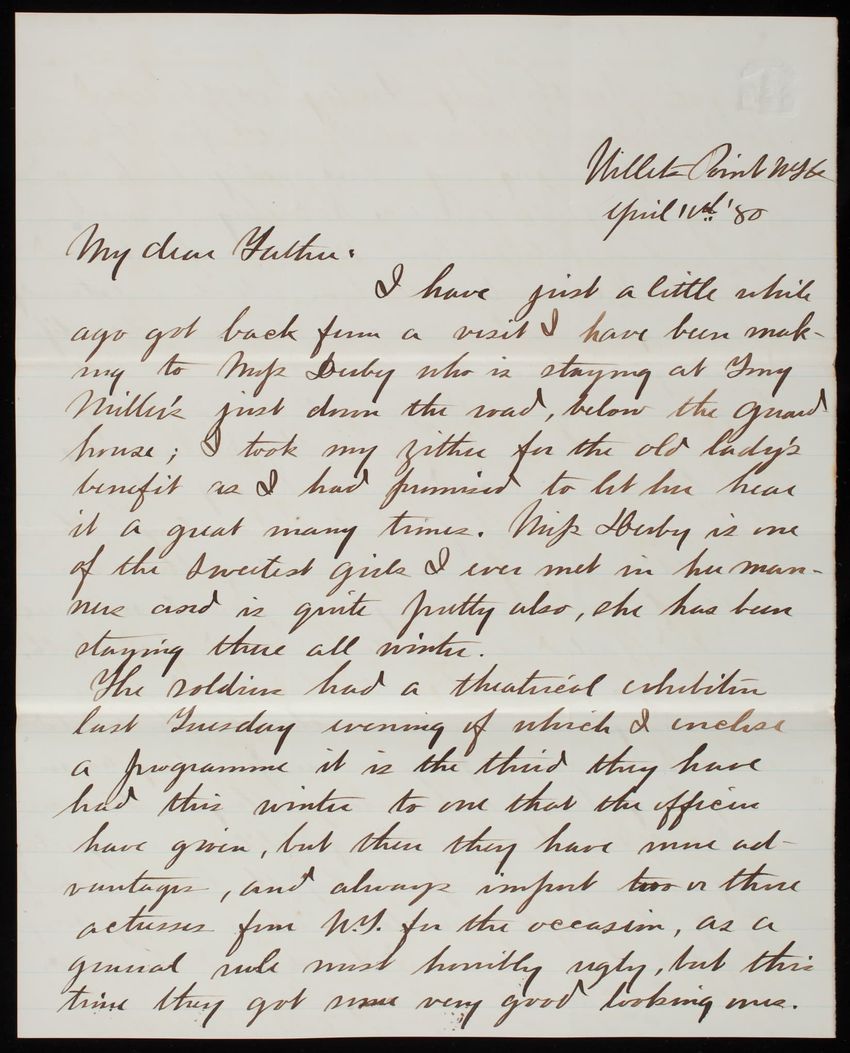 Willets Point N.Y.H.
April 11th '80
My dear Father:
I have just a little while
ago got back from a visit I have been mak-
ing to Miss Derby who is staying at Tony
Miller's just down the road, below the guard
house; I took my zither for the old lady's
benefit as I had promised to let her hear
it a great many times. Miss Derby is one
of the sweetest girls I ever met in her man-
ners and is quite pretty also, she has been
staying there all winter.
The soldiers had a theatrical exhibition
last Tuesday evening of which I enclose
a programme it is the third they have
had this winter to one that the officers
have given, but then they have more ad-
vantages, and always import two or three
actresses from N.Y. for the occasion, as a
general rule most horribly ugly, but this
time they got some very good looking ones.